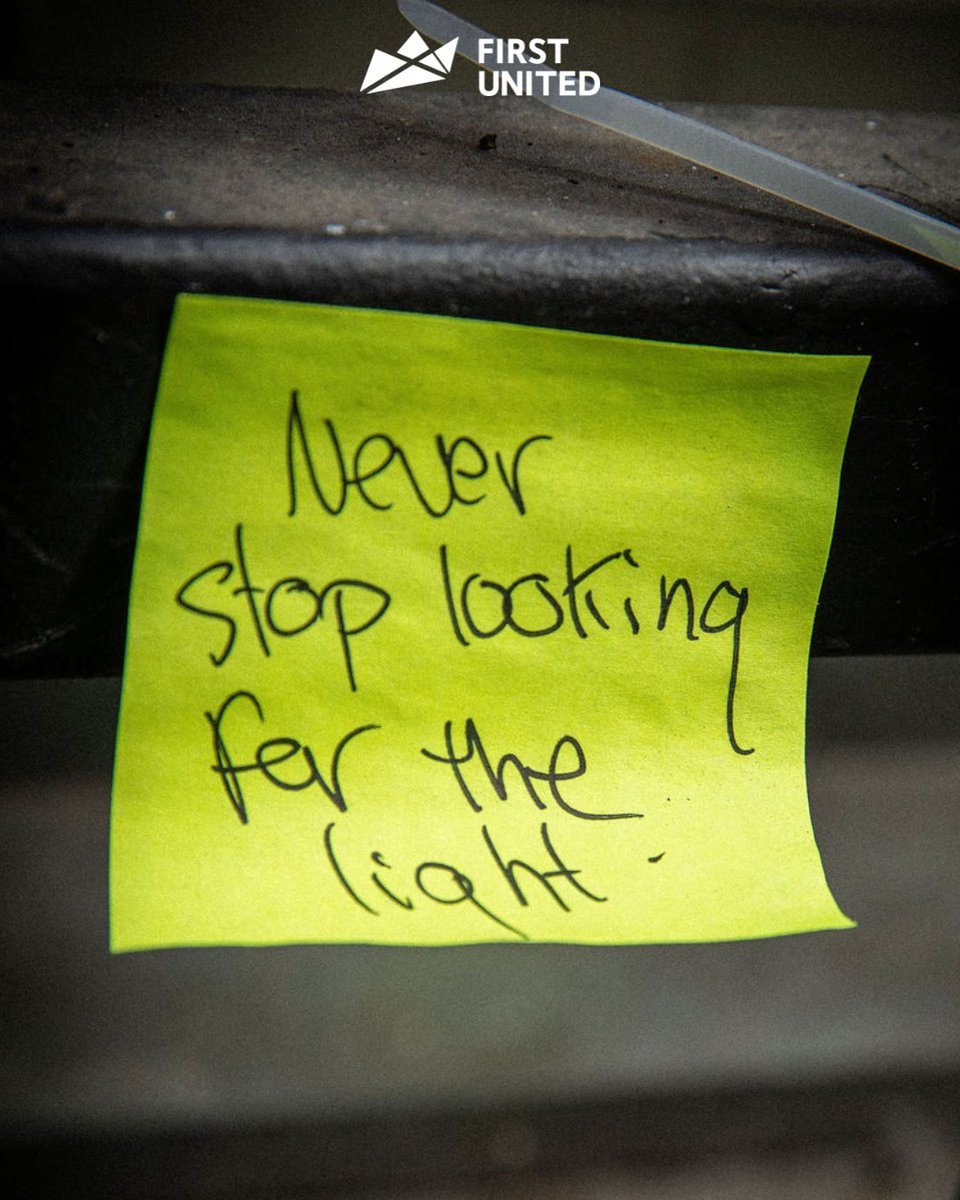 FIRST
UNITED
Never
stop looking
for the
light.